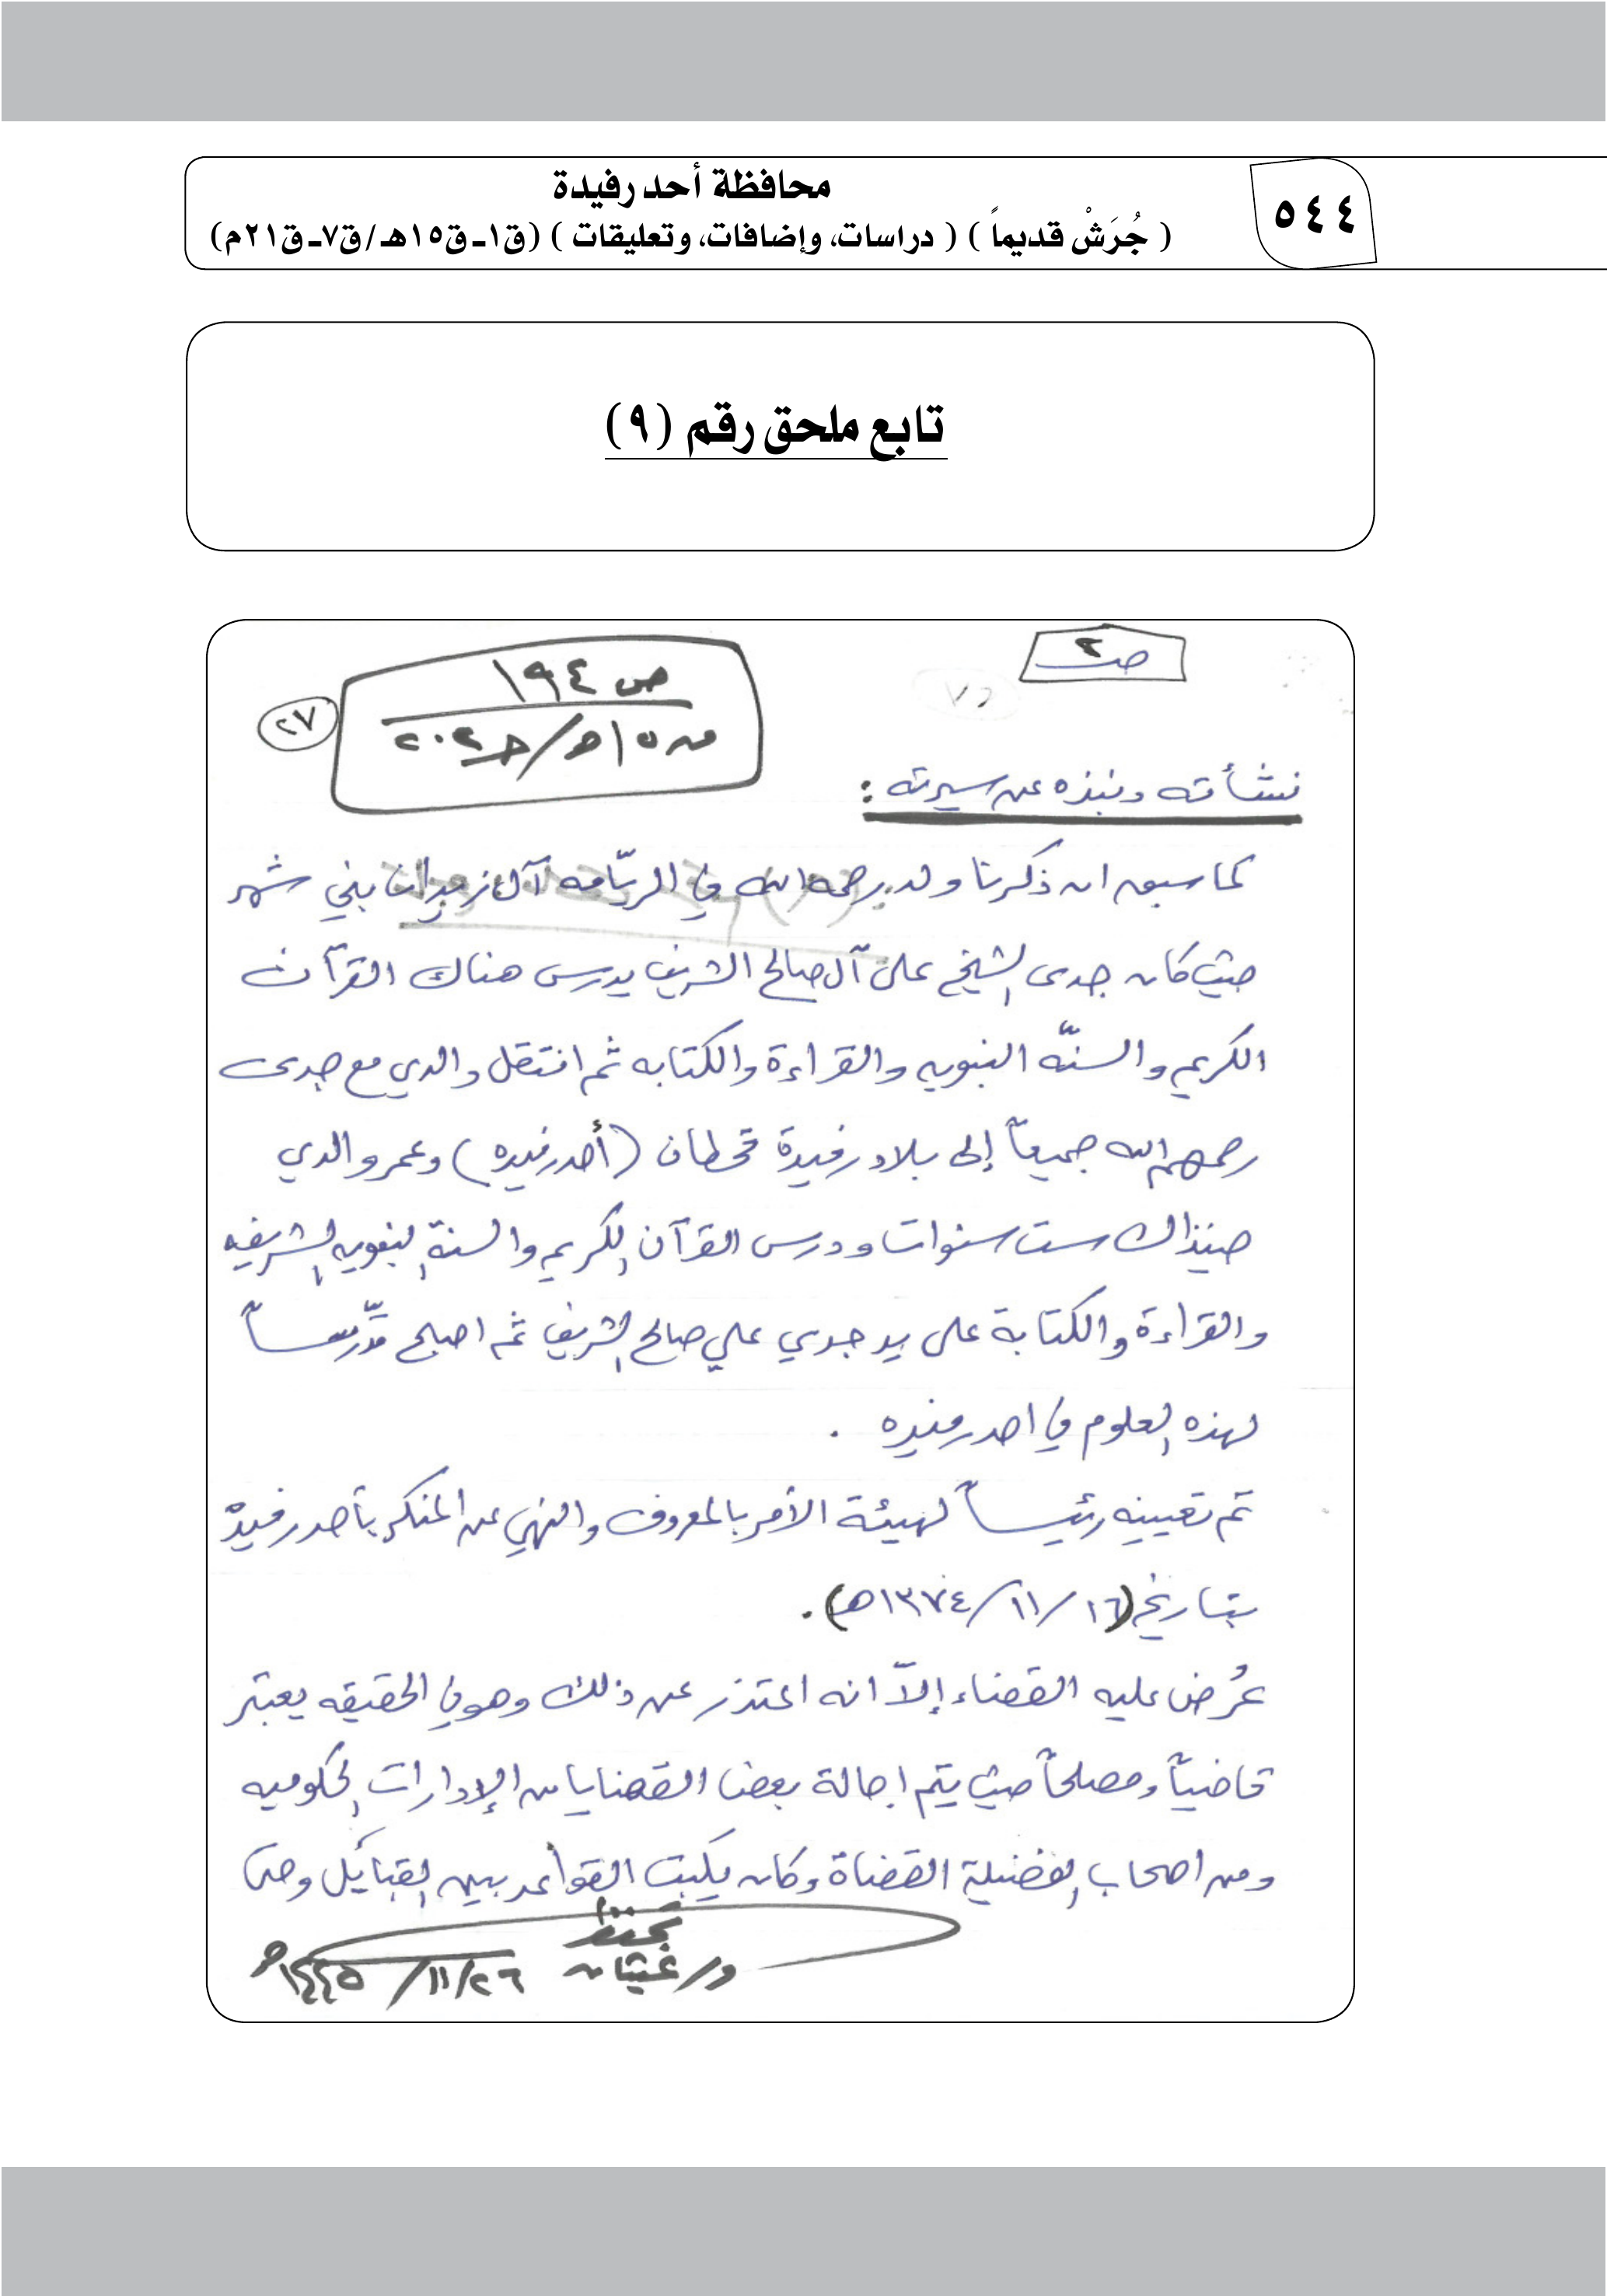 ٥٤٤
محافظة أحد رفيدة
( جُرَشْ قديماً ) ( دراسات، وإضافات، وتعليقات ) (ق١ـ ق١٥هـ/ق٧ـ ق٢١م)
تابع ملحق رقم (٩)
ص٢
ص ١٩٤
٢٧
نشأته ونبذه عن سيرته :
كما سبق ان ذكرنا ولد رحمه الله في الريّامه آل زيدان بني شهر
حيث كان جدى الشيخ على آل صالح الشريف يدرس هناك القرآن
الكريم والسنّه النبويه والقراءة والكتابه ثم انتقل والدي مع جدى
رحمهم الله جميعاً إلى بلاد رفيدة قحطان (أحد رفيده) وعمر والدي
حينذاك ست سنوات ودرس القرآن الكريم والسنة النبويه الشريفه
والقراءة والكتابة على يد جدي علي صالح الشريف ثم اصبح مدّرساً
لهذه العلوم في احد رفيده .
تم تعيينه رئيساً لهيئة الأمر بالمعروف والنهي عن المنكر بأحد رفيدة
بتاريخ (١٦/١١/١٣٧٤هـ).
عُرض عليه القضاء إلاّ انه اعتذر عن ذلك وهو في الحقيقه يعتبر
قاضياً ومصلحاً حيث يتم احالة بعض القضايا من الإدارات الحكوميه
ومن اصحاب الفضيلة القضاة وكان يكتب القواعد بين القبائل وحتى
د/ غيثان ٢٦/١١/١٤٤٥هـ